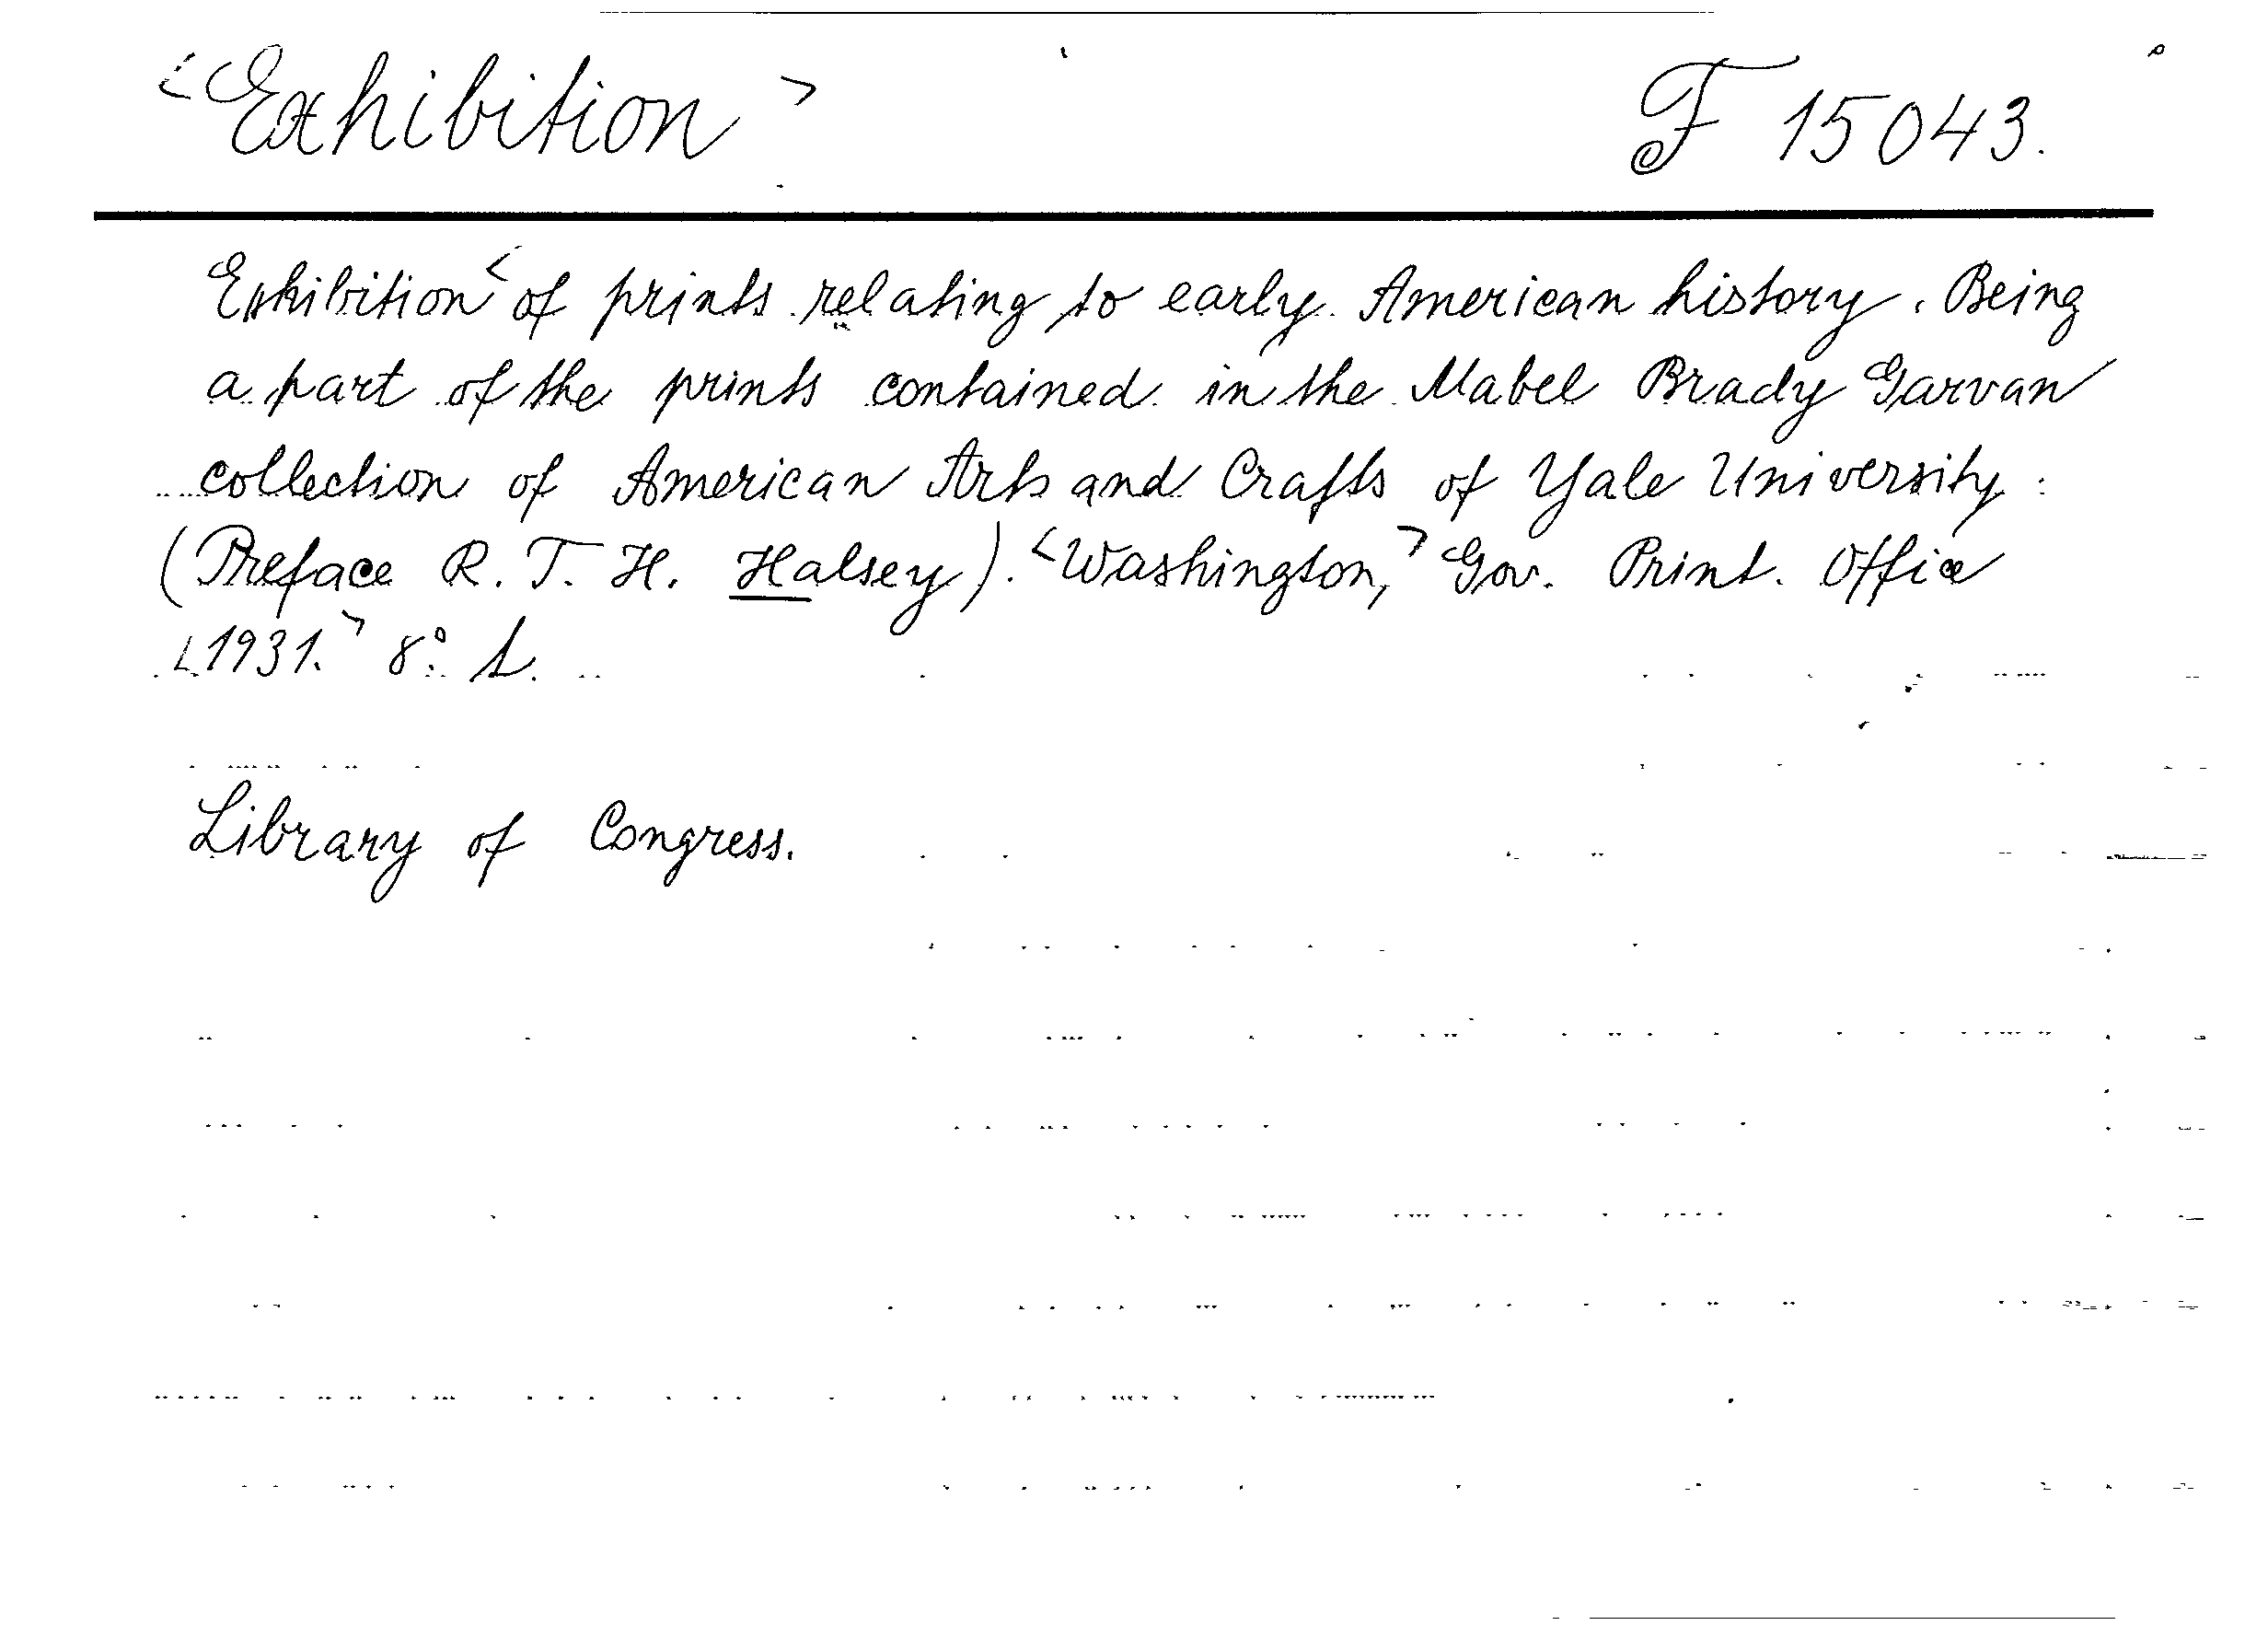 <Exhibition> F 15043.
Exhibition< of prints relating to early American history. Being
a part of the prints contained in the Mabel Brady Garvan
collection of American Arts and Crafts of Yale University.
(Preface R. T. H. Halsey). <Washington,> Gov. Print. Office
<1931.> 8°.
Library of Congress.